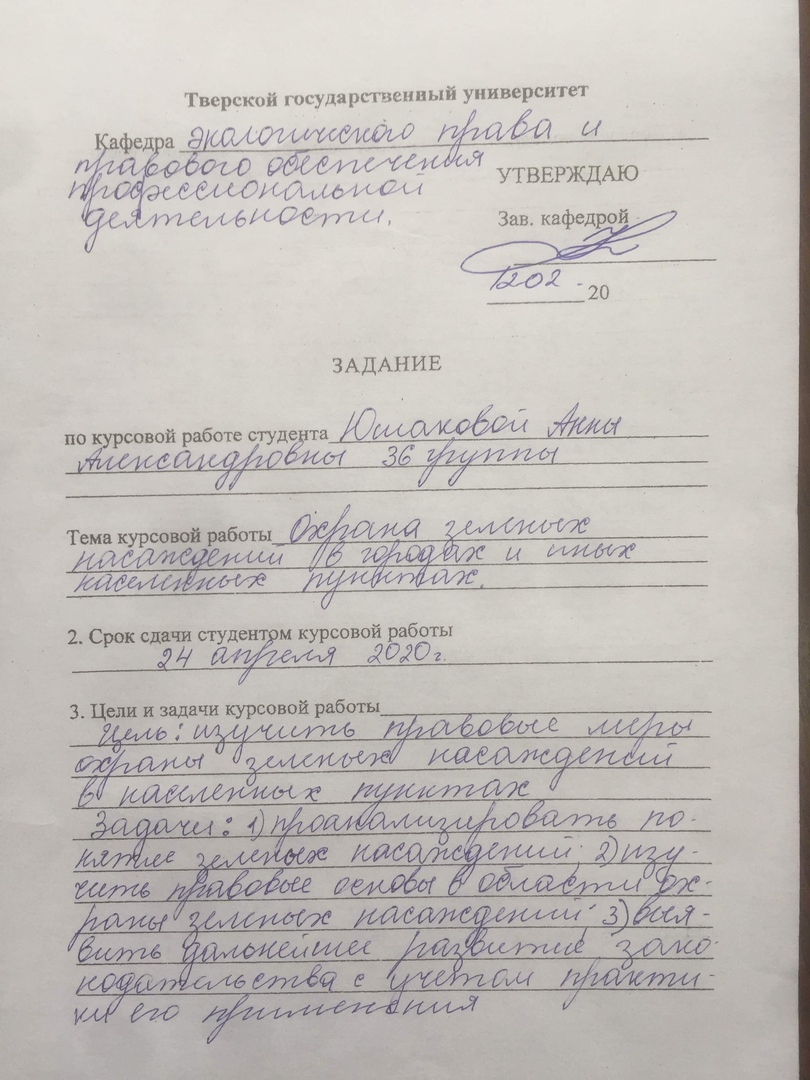 Тверской государственный университет
Кафедра экологического права и
правового обеспечения
профессиональной
деятельности.
УТВЕРЖДАЮ
Зав. кафедрой
20
ЗАДАНИЕ
по курсовой работе студента Юшаковой Анны
Александровны 36 группы
Тема курсовой работы Охрана зеленых
насаждений в городах и иных
населенных пунктах.
2. Срок сдачи студентом курсовой работы
24 апреля 2020г.
3. Цели и задачи курсовой работы
Цель: изучить правовые меры
охраны зеленых насаждений
в населенных пунктах
Задачи: 1) проанализировать по-
нятие зеленых насаждений; 2) изу-
чить правовые основы в области ох-
раны зеленых насаждений; 3) выя-
вить дальнейшее развитие зако-
нодательства с учетом практи-
ки его применения